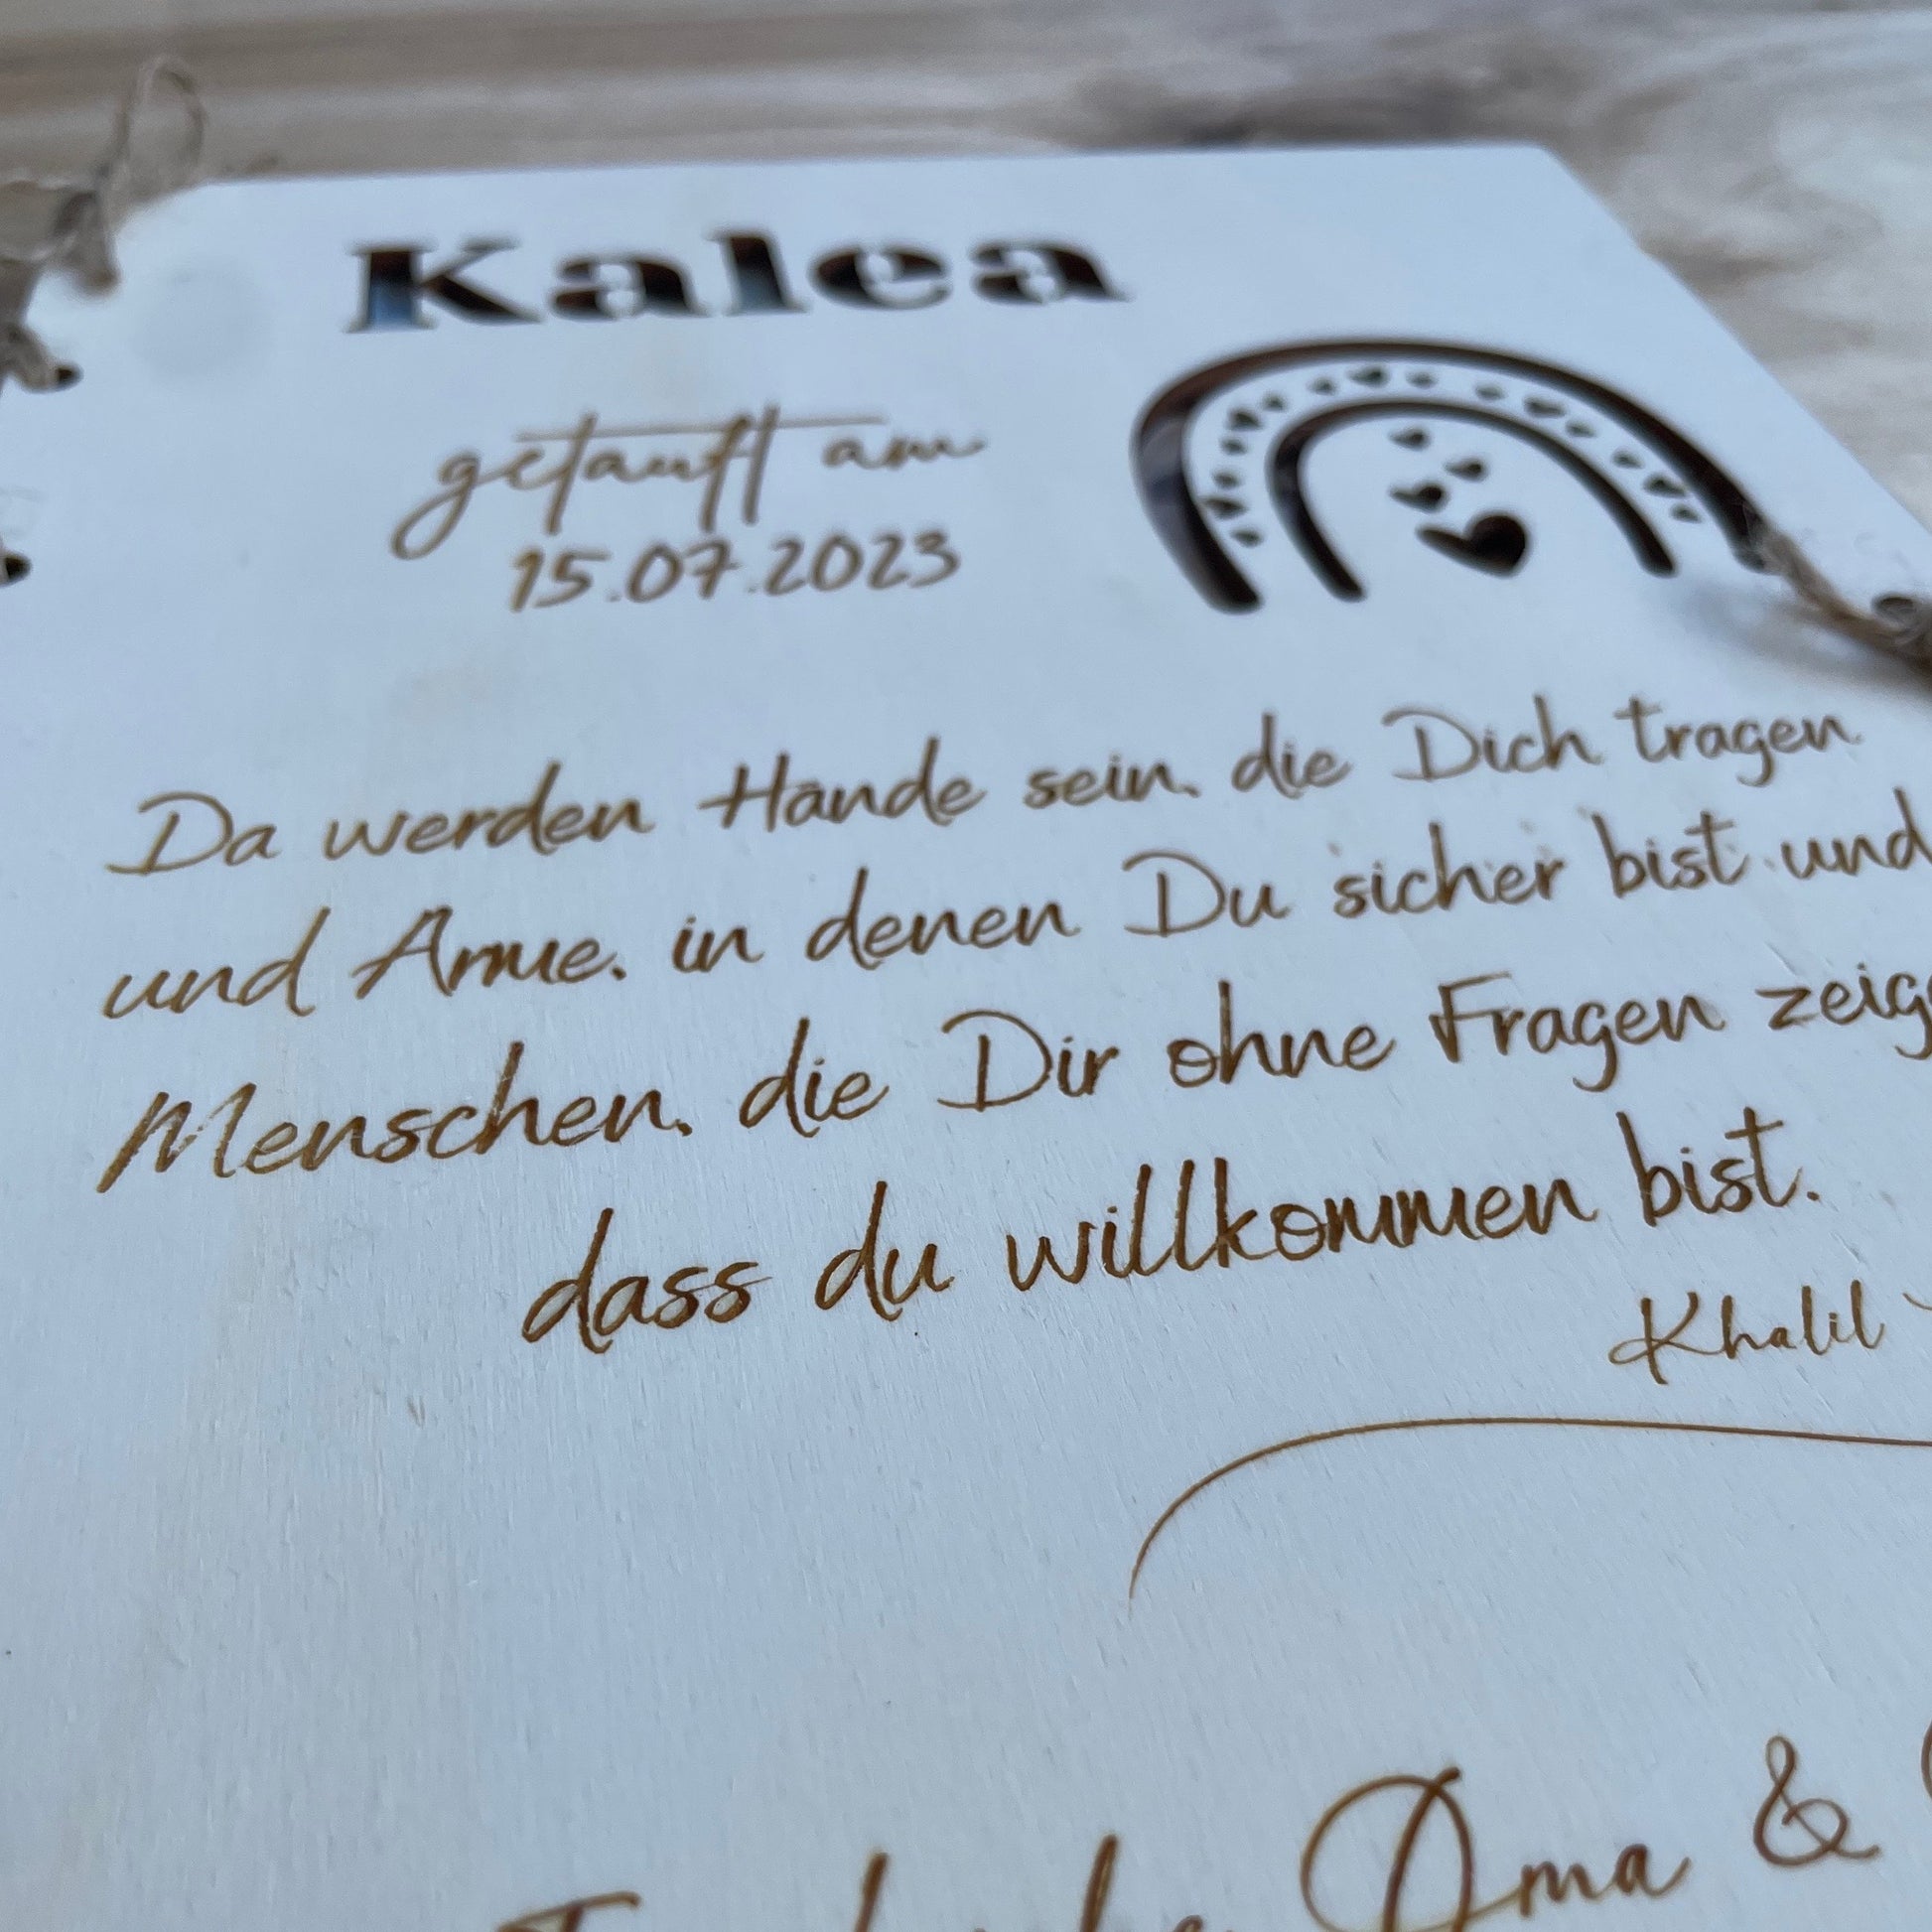 Kalea
getauft am
15.07.2023
Da werden Hände sein, die Dich tragen
und Arme, in denen Du sicher bist und
Menschen, die Dir ohne Fragen zeig
dass du willkommen bist.
Khalil
Oma &